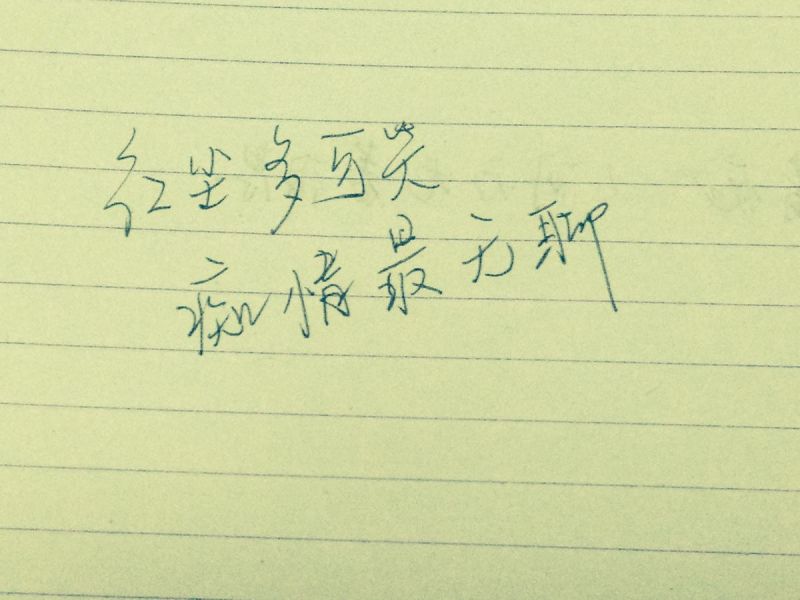 红尘多可笑
痴情最无聊